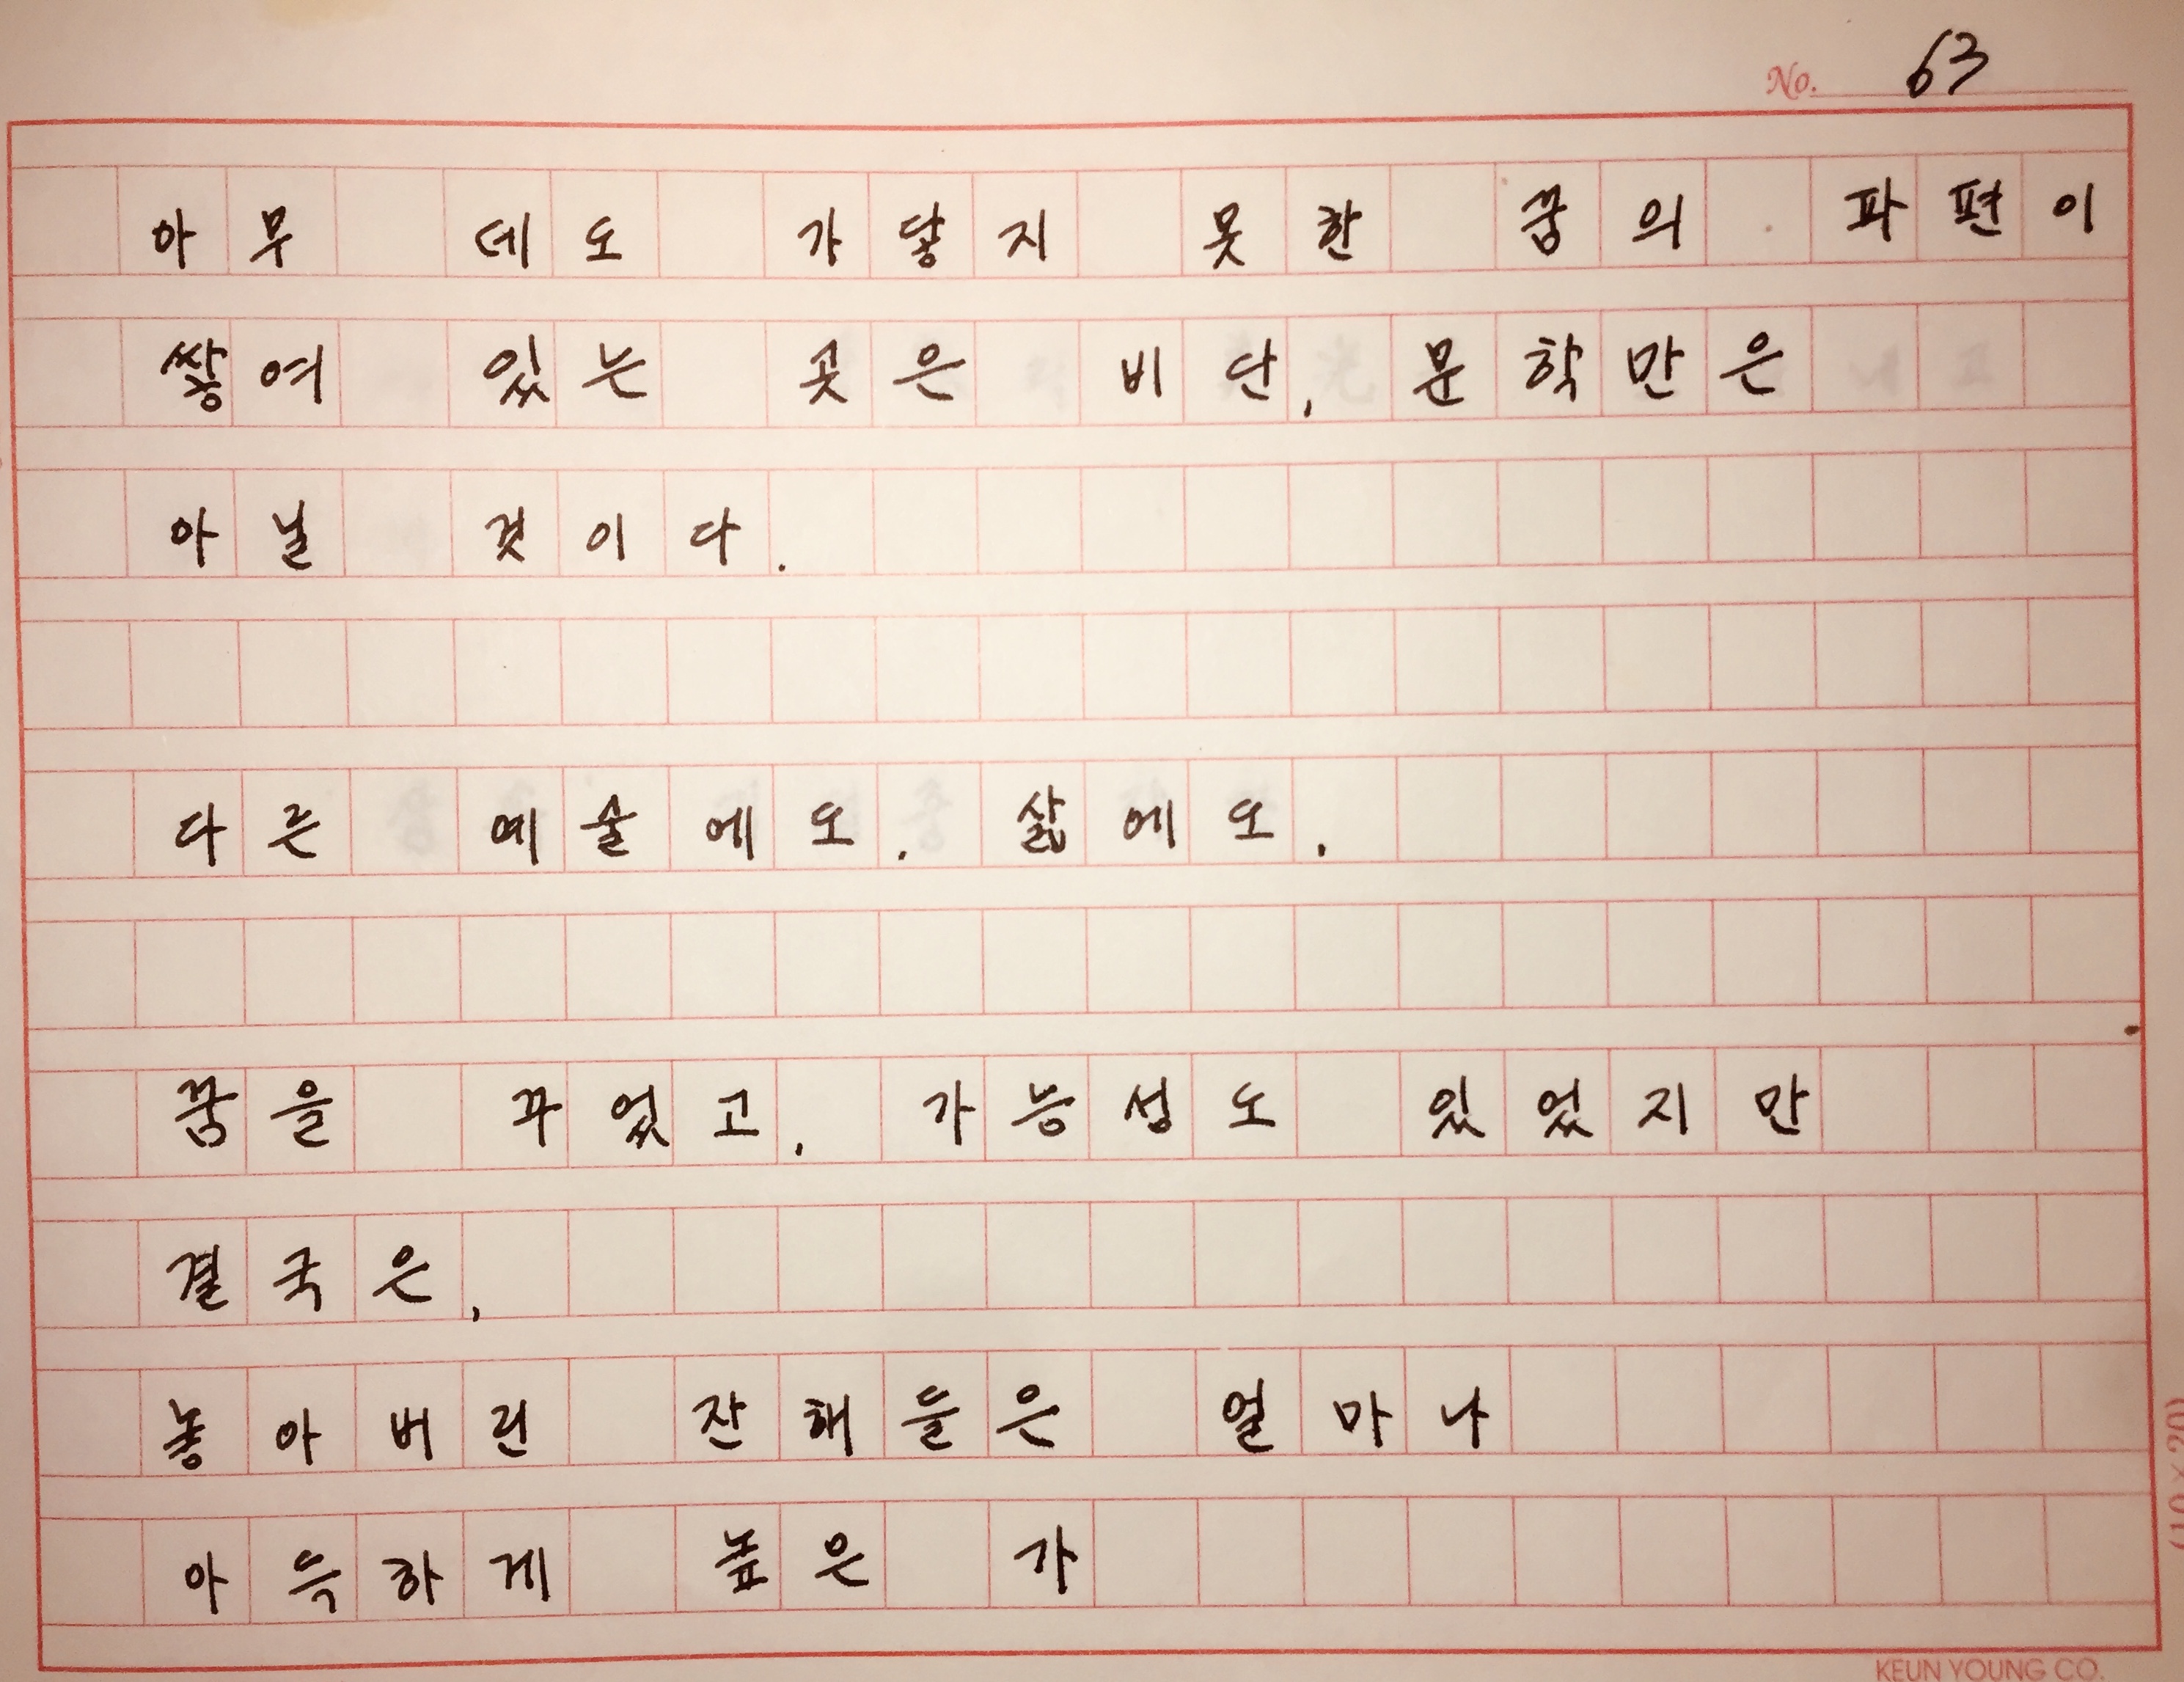 No. 63
아무 데도 가닿지 못한 꿈의 파편이
쌓여 있는 곳은 비단, 문학만은
아닐 것이다.
다른 예술에도. 삶에도.
꿈을 꾸었고, 가능성도 있었지만
결국은,
놓아버린 잔해들은 얼마나
아득하게 높은가
(10×20)
KEUN YOUNG CO.